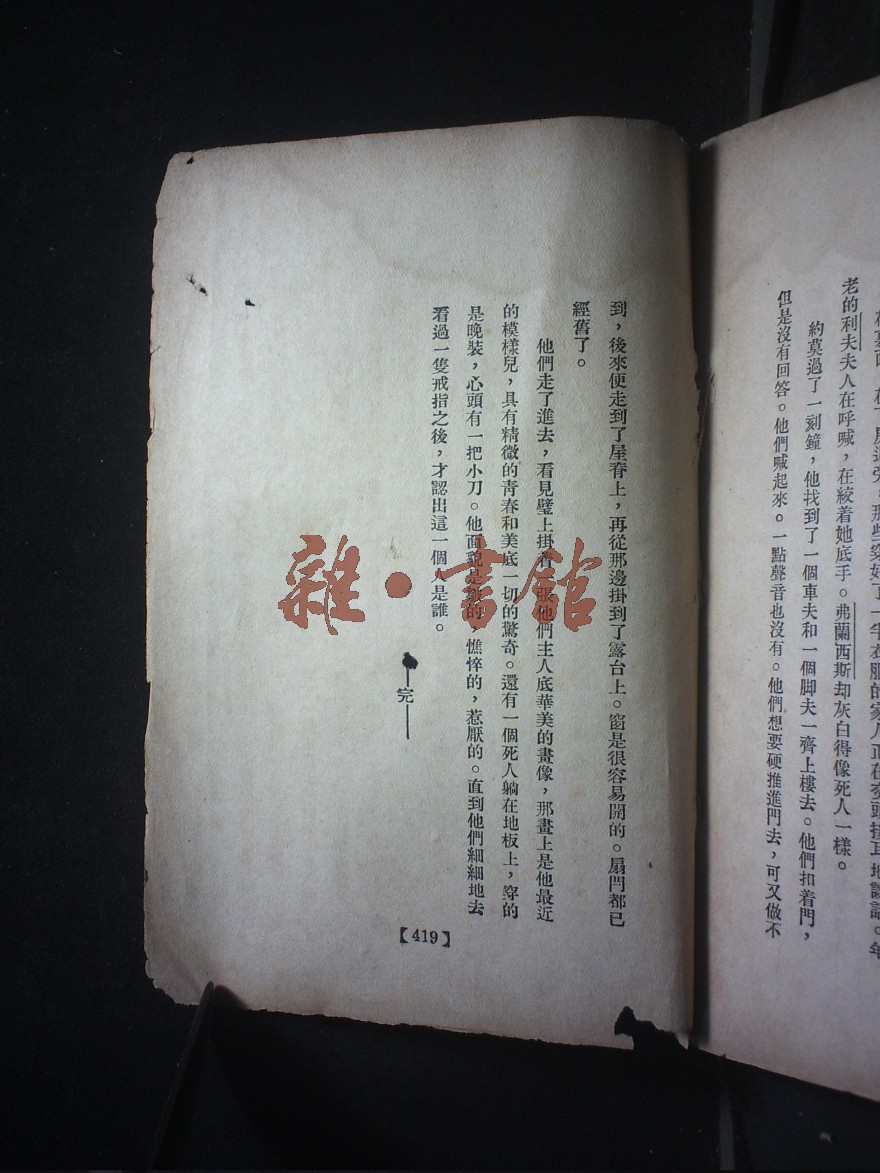 老的利夫夫人在呼喊，在絞着她底手。弗蘭西斯却灰白得像死人一樣。
約莫過了一刻鐘，他找到了一個車夫和一個脚夫一齊上樓去。他們扣着門，
但是沒有回答。他們喊起來。一點聲音也沒有。他們想要硬推進門去，可又做不
到，後來便走到了屋脊上，再從那邊掛到了露台上。窗是很容易開的。扇門都已
經舊了。
他們走了進去，看見壁上掛着一張他們主人底華美的畫像，那畫上是他最近
的模樣兒，具有精微的青春和美底一切的驚奇。還有一個死人躺在地板上，穿的
是晚裝，心頭有一把小刀。他面貌是皺的，憔悴的，惹厭的。直到他們細細地去
看過一隻戒指之後，才認出這一個人是誰。
——完——
【419】
雜·書館